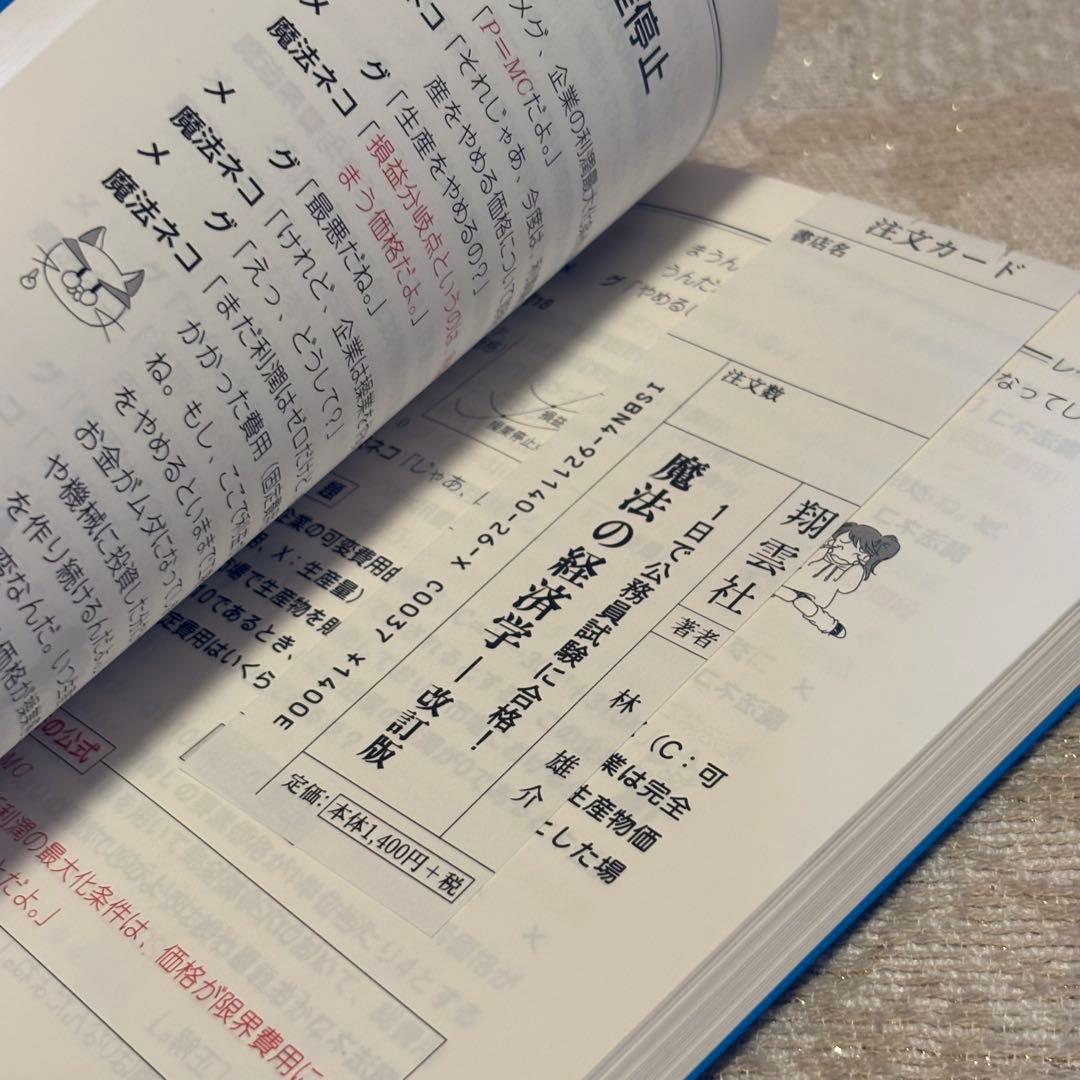 産停止
メグ、企業の利潤最大
「P=MCだよ。」
魔法ネコ「それじゃあ、今度は
産をやめる価格について
メグ「生産をやめるの?」
魔法ネコ「損益分岐点というのは
まう価格だよ。」
メグ「最悪だね。」
魔法ネコ「けれど、企業は操業を
メグ「えっ、どうして?」
魔法ネコ「まだ利潤はゼロだけど
かかった費用(固定費
ね。もし、ここで
をやめるといままで
お金がムダになって
や機械に投資した
を作り続けるんだよ。
変なんだ。いつ
価格が
まうん
うんだ
グ「やめる
損益
操業停止
ネコ「じゃあ、
題
企業の可変費用
X:生産量)
場で生産物を
10であるとき、
定費用はいくら
の公式
MC
利潤の最大化条件は、価格が限界費用に
だよ。」
注文カード
書店名
注文数
翔雲社
著者
林 雄介
1日で公務員試験に合格!
魔法の経済学―改訂版
ISBN4-921140-26-X C0037 ¥1400E
定価:本体1,400円+税
レ
なってし
(C:可
業は完全
生産物価
にした場